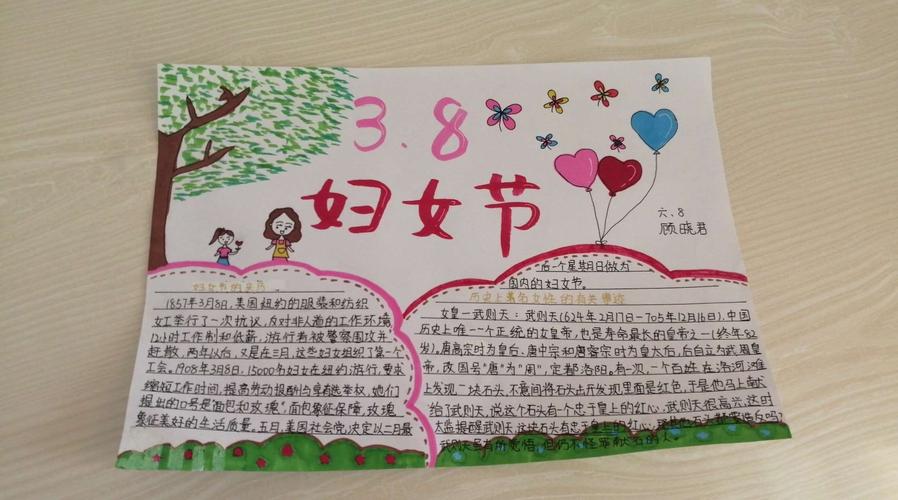 3.8
妇女节
六.8
顾晓君
妇女节的来历
1857年3月8日,美国纽约的服装和纺织
女工举行了一次抗议,反对非人道的工作环境,
12小时工作制和低薪,游行者被警察围攻并
赶散,两年以后,又是在三月,这些妇女组织了第一个
工会。1908年3月8日,15000名妇女在纽约游行,要求
缩短工作时间,提高劳动报酬与享有选举权,她们
提出的口号是"面包和玫瑰",面包象征保障,玫瑰
象征美好的生活质量。五月,美国社会党决定以二月最
后一个星期日做为
国内的妇女节。
历史上著名女性的有关事迹
女皇一武则天:武则天(624年2月17日-705年12月16日),中国
历史上唯一一个正统的女皇帝,也是寿命最长的皇帝之一(终年82
岁),唐高宗时为皇后、唐中宗和唐睿宗时为皇太后,后自立为武周皇
帝,改国号"唐"为"周",定都洛阳。有一次,一个百姓在洛河滩
上发现一块石头,不意间将石头击开发现里面是红色,于是他马上献
给了武则天,说这个石头有一个忠于皇上的红心,武则天很高兴,这时
大臣提醒武则天,这块石头有忠于皇上的红心,
武则天虽有所觉悟,但仍不怪罪献石的人。